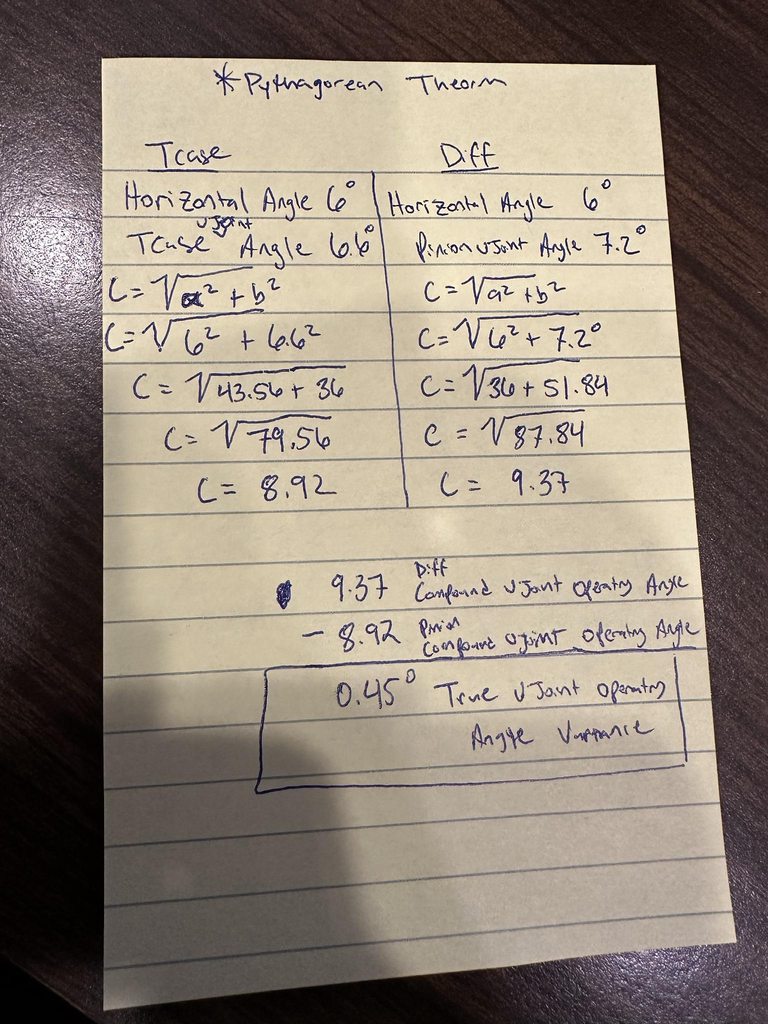 *Pythagorean Theorm
Tcase Diff
Horizontal Angle 6° Horizontal Angle 6°
Tcase UJoint Angle 6.6° Pinion UJoint Angle 7.2°
C=√a²+b² C=√a²+b²
C=√6²+6.6² C=√6²+7.2°
C=√43.56+36 C=√36+51.84
C=√79.56 C=√87.84
C=8.92 C=9.37
9.37 Diff Compound UJoint Operatng Angle
-8.92 Pinion Compound UJoint Operatng Angle
0.45° True UJoint Operatng
Angle Variance